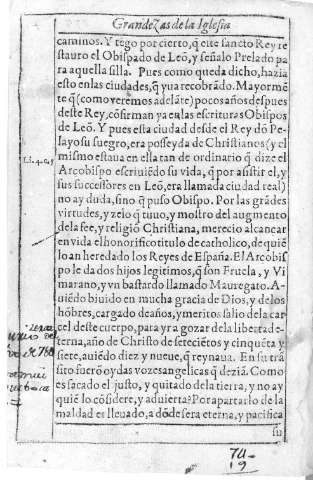 Grandezas de la Iglesia
caminos. Y tẽgo por cierto, q̃ este sancto Rey re
stauro el Obispado de Leõ, y señalo Prelado pa
ra aquella silla. Pues como queda dicho, hazia
esto en las ciudades, q̃ yua recobrãdo. Mayormẽ
te q̃ (como veremos adelãte) pocos años despues
deste Rey, cõfirman ya en las escrituras Obispos
de Leõ. Y pues esta ciudad desde el Rey dõ Pe-
layo su suegro, era posseyda de Christianos (y el
mismo estaua en esta tan de ordinario q̃ dize el
Arcobispo escriuiẽdo su vida, q̃ por assistir el, y
sus successores en Leõ, era llamada ciudad real)
no ay duda, sino q̃ puso Obispo. Por las grãdes
virtudes, y zelo q̃ tuuo, y mostro del augmento
de la fee, y religiõ Christiana, merecio alcançar
en vida el honorifico titulo de catholico, de quiẽ
lo an heredado los Reyes de España. El Arcobis
po le da dos hijos legitimos, q̃ son Fruela, y Vi
marano, y vn bastardo llamado Mauregato. A-
uiẽdo biuido en mucha gracia de Dios, y de los
hõbres, cargado de años, y meritos salio de la car
cel deste cuerpo, para yr a gozar de la libertad e-
terna, año de Christo de seteciẽtos y cinquẽta y
siete, auiẽdo diez y nueue, q̃ reynaua. En su trã
sito fuerõ oydas vozes angelicas q̃ deziã. Como
es sacado el justo, y quitado de la tierra, y no ay
quiẽ lo cõsidere, y aduierta? Por apartarlo de la
maldad es lleuado, a dõde sera eterna, y pacifica
su
74-
19